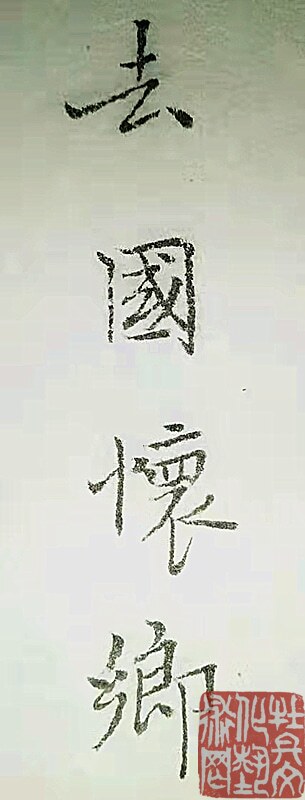 去國懷鄉